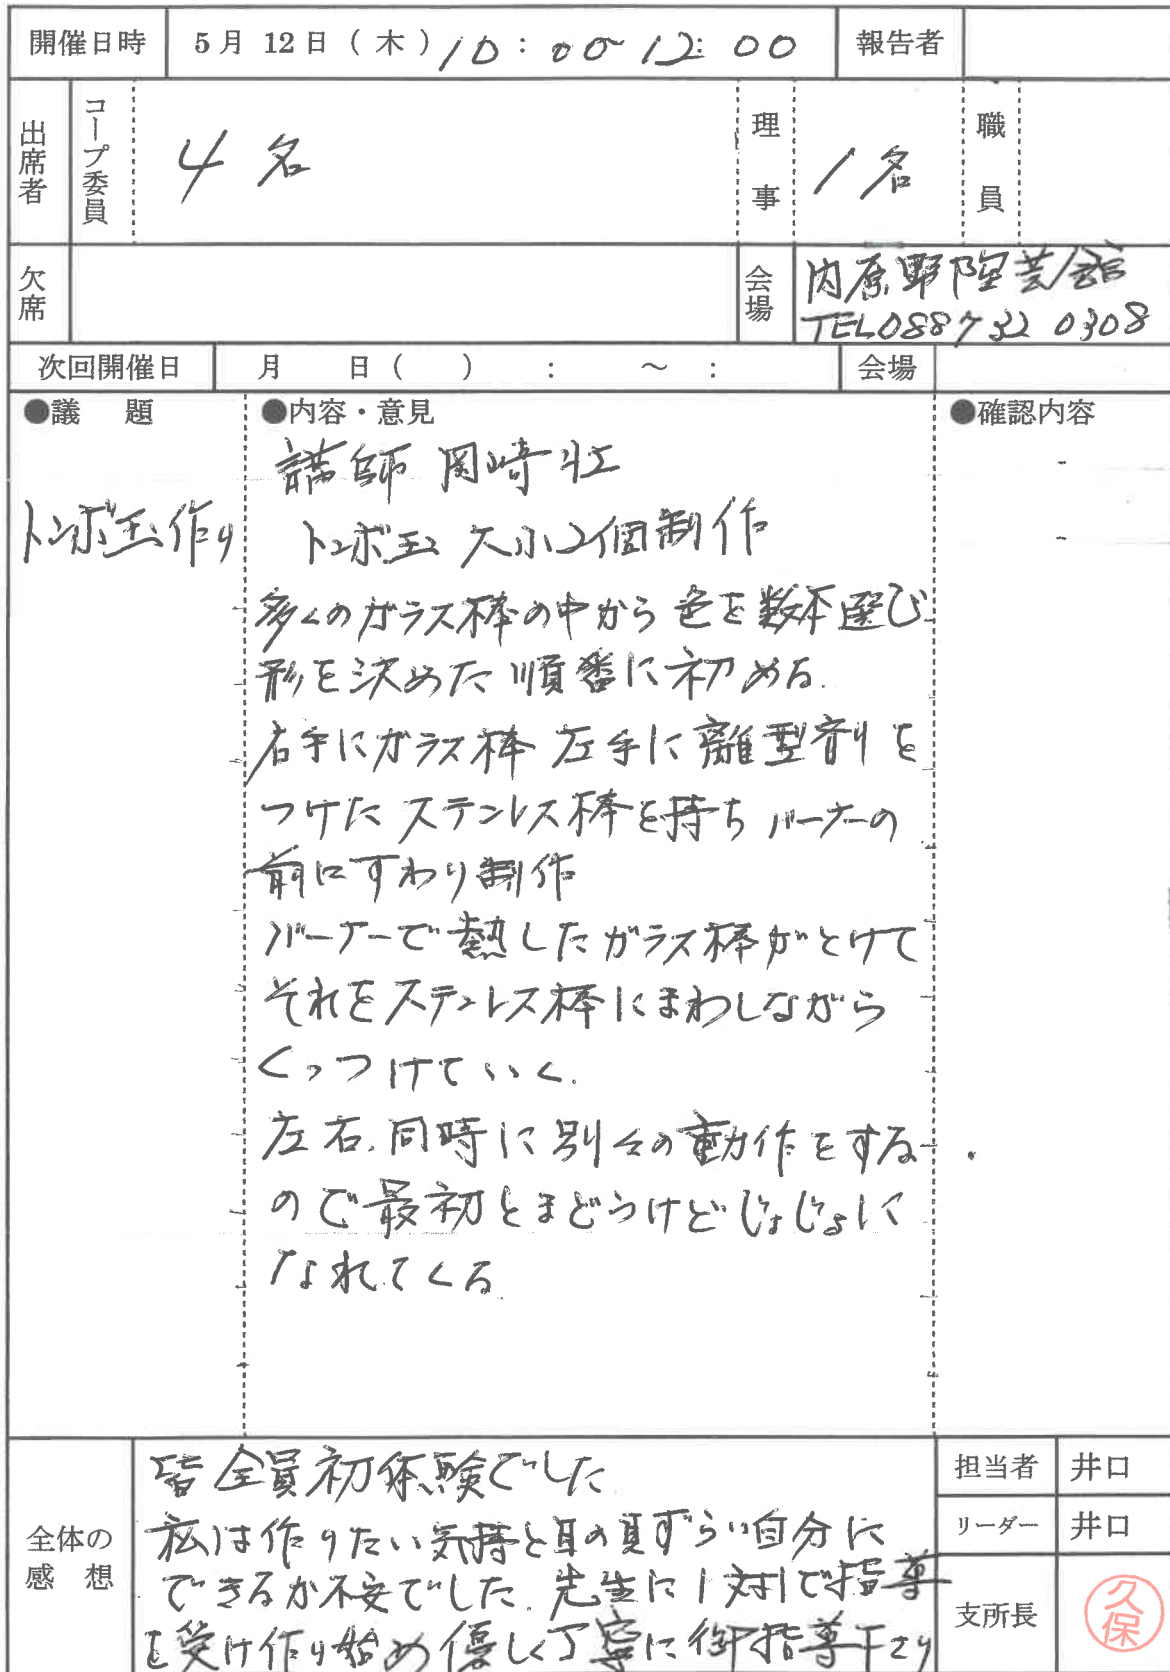 開催日時 5月 12日 ( 木 ) 10 : 00~12: 00 報告者
出席者 コープ委員 4名 理事 1名 職員
欠席 会場 内原野陶芸館
TEL 08873 2 0308
次回開催日 月 日 ( ) : ~ : 会場
●議 題 ●内容・意見 ●確認内容
講師 岡崎壮
トンボ玉作り トンボ玉 大小2個制作
多くのガラス棒の中から 色を数本選び
形を決めた順番に初める.
右手にガラス棒 左手に離型剤を
つけた ステンレス棒を持ち バーナーの
前にすわり制作
バーナーで熱したガラス棒がとけて
それをステンレス棒にまわしながら
くっつけていく.
左右.同時に別々の動作をする
ので最初とまどうけどじょじょに
なれてくる
全体の感想
皆全員初体験でした
私は作りたい気持と目の見ずらい自分に
できるか不安でした. 先生に1対1で指導
を受け作り始め優しく丁寧に御指導下さり
担当者 井口
リーダー 井口
支所長 久保